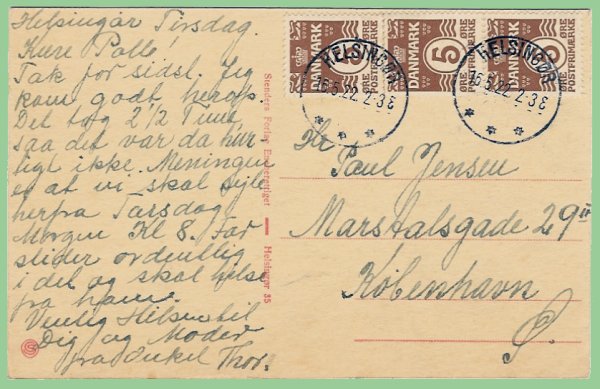 Helsingør Tirsdag.
Kære Palle!
Tak for sidst. Jeg
kom godt herop.
Det tog 2 1/2 Time,
saa det var da hur-
tigt ikke. Meningen
er at vi skal sejle
herfra Torsdag
Morgen Kl 8. Far
slider ordentlig
i det og skal hilse
fra ham.
Venlig Hilsen til
Dig og Moder
fra Onkel Thor.
Stenders Forlag Eneberettiget
Helsingør 35
DANMARK 5 ØRE POSTFRIMÆRKE
DANMARK 5 ØRE POSTFRIMÆRKE
DANMARK 5 ØRE POSTFRIMÆRKE
HELSINGØR
16.5.22. 2-3 E
HELSINGØR
16.5.22. 2-3 E
Hr
Paul Jensen
Marstalsgade 29 II
København
Ø.